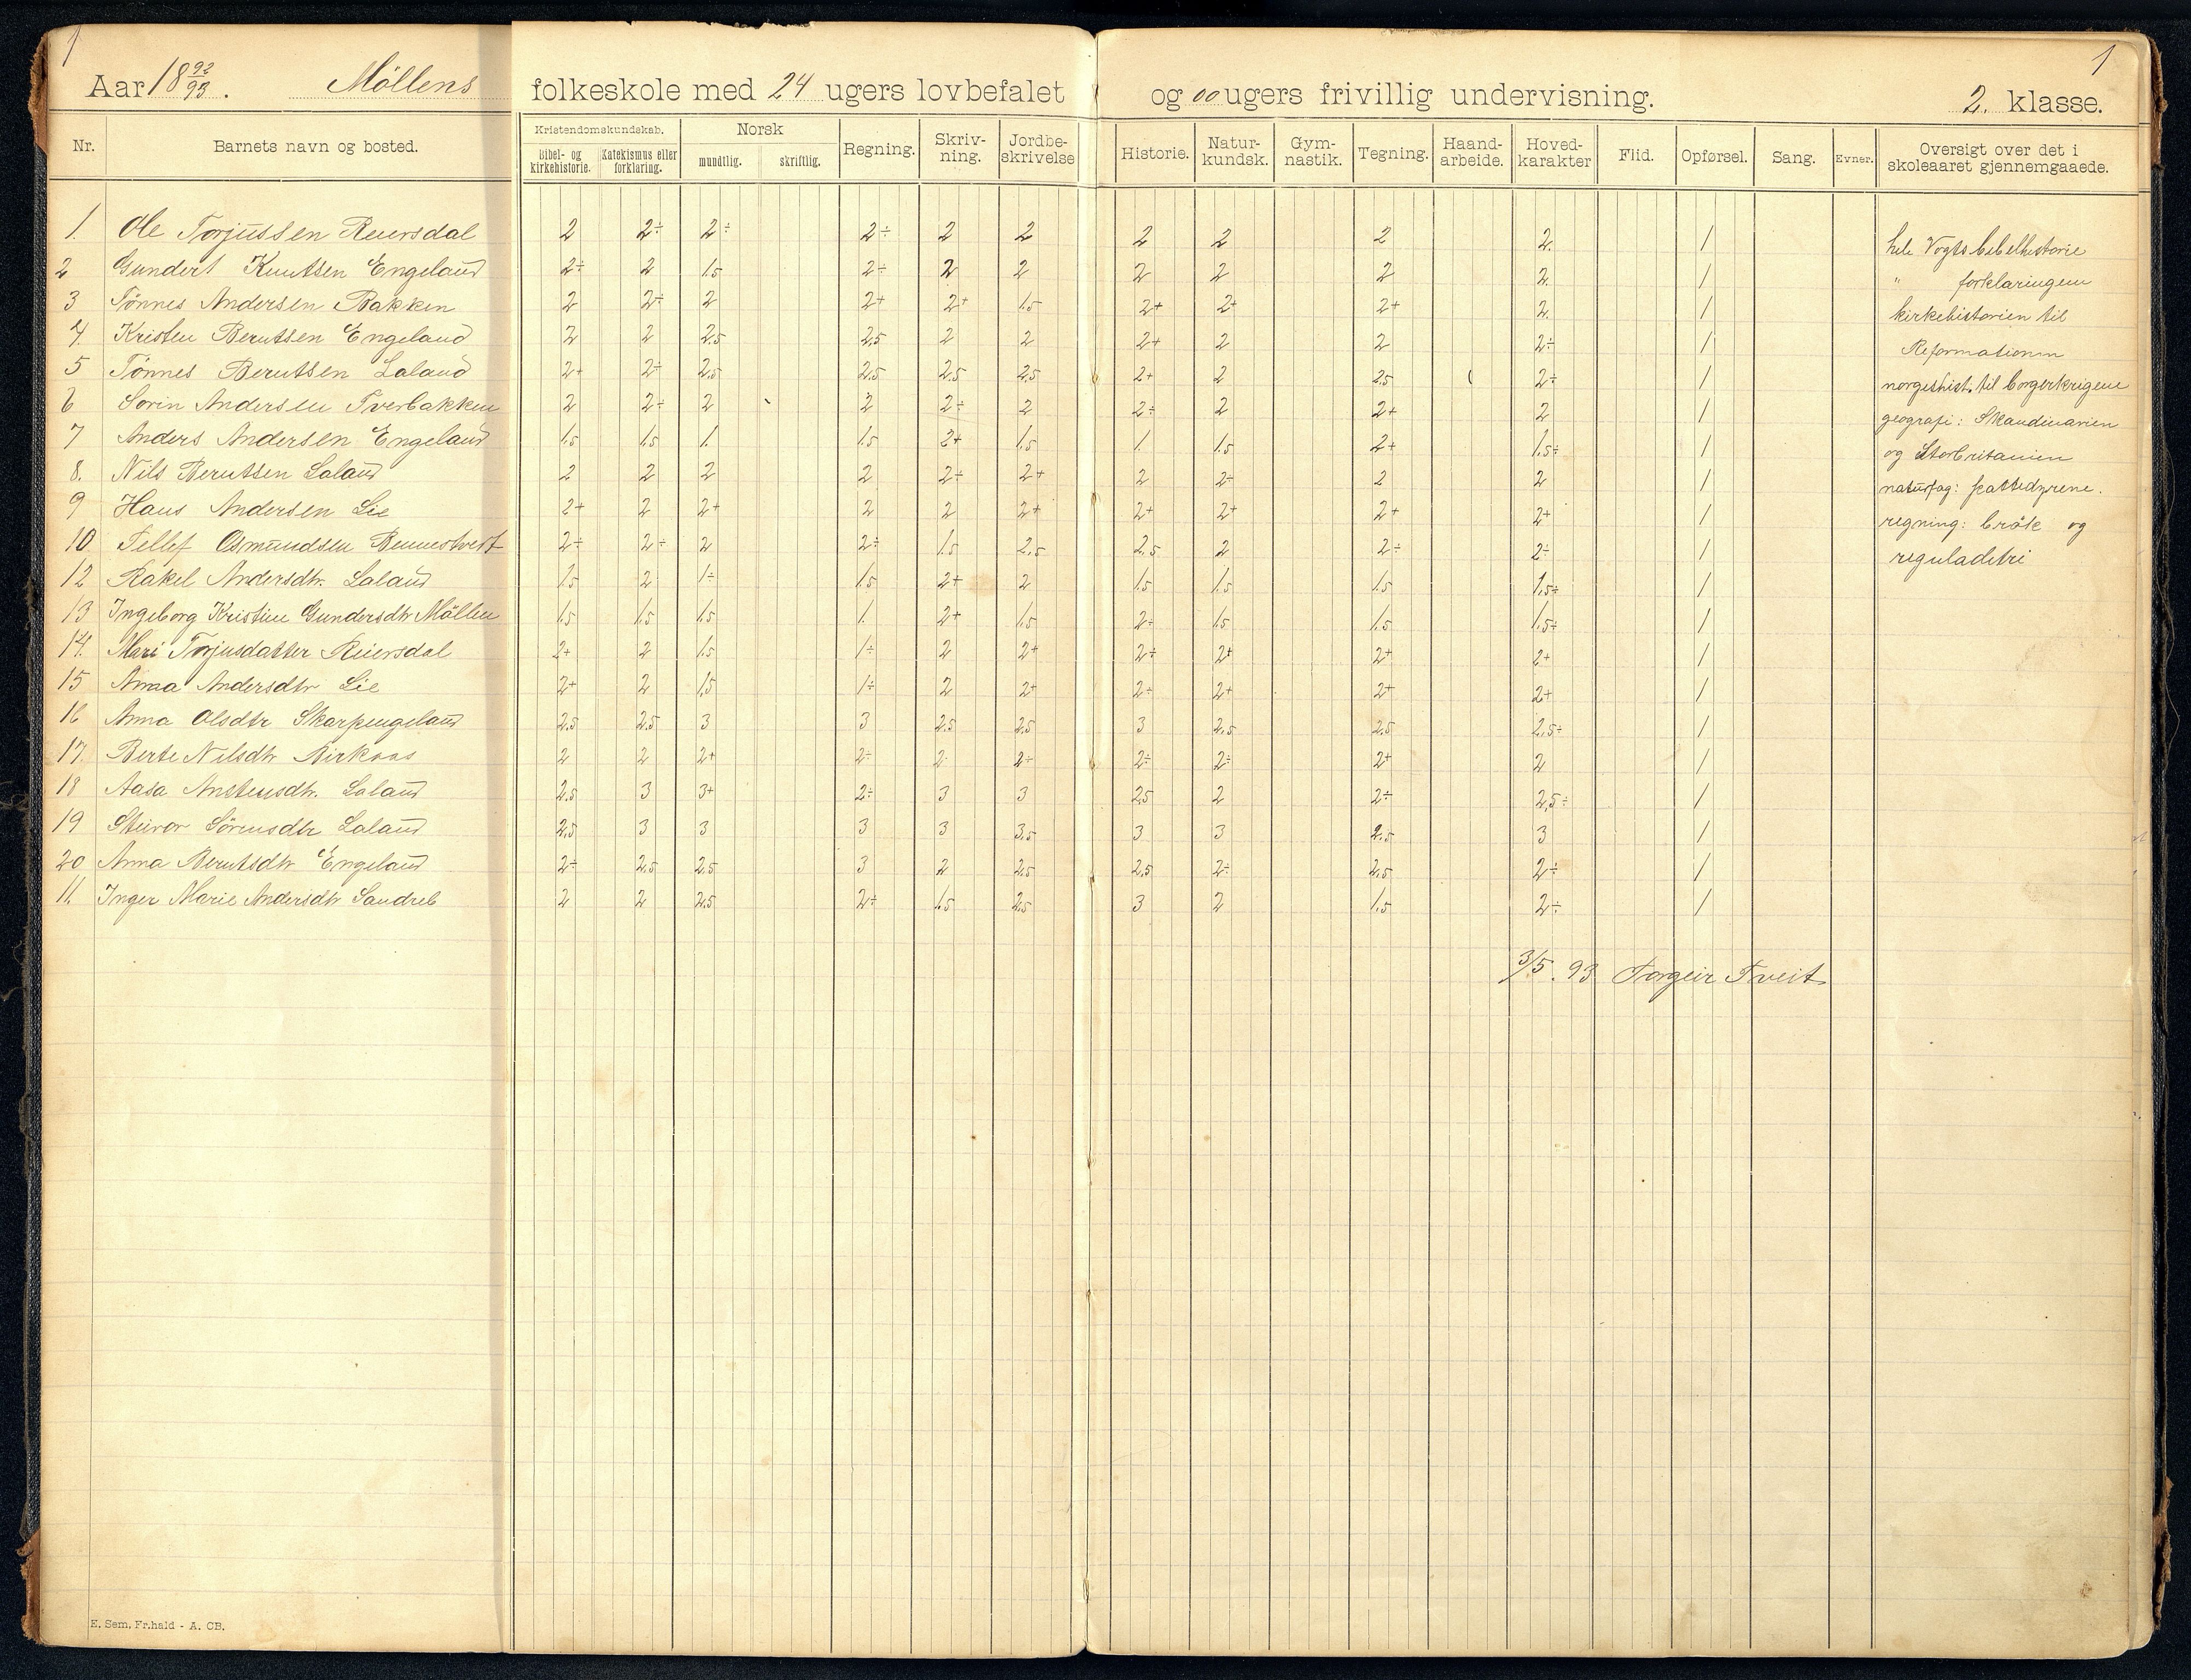 1 1
Aar 18 92/93. Möllens folkeskole med 24 ugers lovbefalet og 00 ugers frivillig undervisning. 2. klasse.
Nr. Barnets navn og bosted. Kristendomskundskab. Bibel- og kirkehistorie. Katekismus eller forklaring. Norsk mundtlig. skriftlig. Regning. Skriv-ning. Jordbe-skrivelse Historie. Natur-kundsk. Gym-nastik. Tegning. Haand-arbeide. Hoved-karakter Flid. Opførsel. Sang. Evner. Oversigt over det i skoleaaret gjennemgaaede.
1. Ole Torjussen Reiersdal 2 2÷ 2÷ 2÷ 2 2 2 2 2 2. /
2 Gundert Knutsen Engeland 2÷ 2 1.5 2÷ 2 2 2 2 2 2. /
3 Tönnes Andersen Bakken 2 2÷ 2 2+ 2+ 1.5 2+ 2+ 2+ 2. /
4. Kristen Berntsen Engeland 2 2 2.5 2.5 2 2 2+ 2 2 2÷ /
5 Tönnes Berntsen Laland 2+ 2÷ 2.5 2.5 2.5 2.5 2+ 2 2.5 2÷ /
6 Sorin Andersen Tverbakken 2 2÷ 2 2 2÷ 2 2÷ 2 2+ 2 /
7 Anders Andersen Engeland 1.5 1.5 1. 1.5 2+ 1.5 1. 1.5 2+ 1.5÷ /
8. Nils Berntsen Laland 2 2 2 2 2÷ 2+ 2 2÷ 2 2 /
9 Hans Andersen Lie 2+ 2 2+ 2 2 2+ 2+ 2+ 2+ 2+ /
10 Tellef Osmundsen Bennestvett 2÷ 2÷ 2 2÷ 1.5 2.5 2.5 2 2÷ 2÷ /
12 Rakel Andersdtr. Laland 1.5 2 1÷ 1.5 2+ 2 1.5 1.5 1.5 1.5÷ /
13 Ingeborg Kristine Gundersdtr Möllen 1.5 1.5 1.5 1. 2+ 1.5 2÷ 1.5 1.5 1.5÷ /
14. Mari Torjusdatter Reiersdal 2+ 2 1.5 1÷ 2 2+ 2÷ 2+ 2+ 2+ /
15 Anna Andersdtr Lie 2+ 2 1.5 1÷ 2 2+ 2÷ 2+ 2+ 2+ /
16 Anna Olsdtr Skarpengeland 2.5 2.5 3 3 2.5 2.5 3 2.5 2.5 2.5÷ /
17. Berte Nilsdtr Birkaas 2 2 2+ 2÷ 2 2÷ 2÷ 2÷ 2+ 2 /
18 Aasa Anstensdtr. Laland 2.5 3 3+ 2÷ 3 3 2.5 2 2÷ 2.5÷ /
19 Steivor Sörensdtr Laland 2.5 3 3 3 3 3.5 3 3 2.5 3 /
20 Anna Berntsdtr Engeland 2÷ 2.5 2.5 3 2 2.5 2.5 2÷ 2.5 2÷ /
11. Inger Marie Andersdtr Sandreb 2 2 2.5 2÷ 1.5 2.5 3 2 1.5 2÷ /
hele Vogts bibelhistorie
" forklaringen
kirkehistorien til
Reformationen
norgeshist. til borgerkrigene
geografi: Skandinavien
og Storbritanien
naturfag: pattedyrene.
regning: brök og
reguladetri
3/5. 93 Torgeir Tveit
E. Sem, Fr.hald - A. CB.